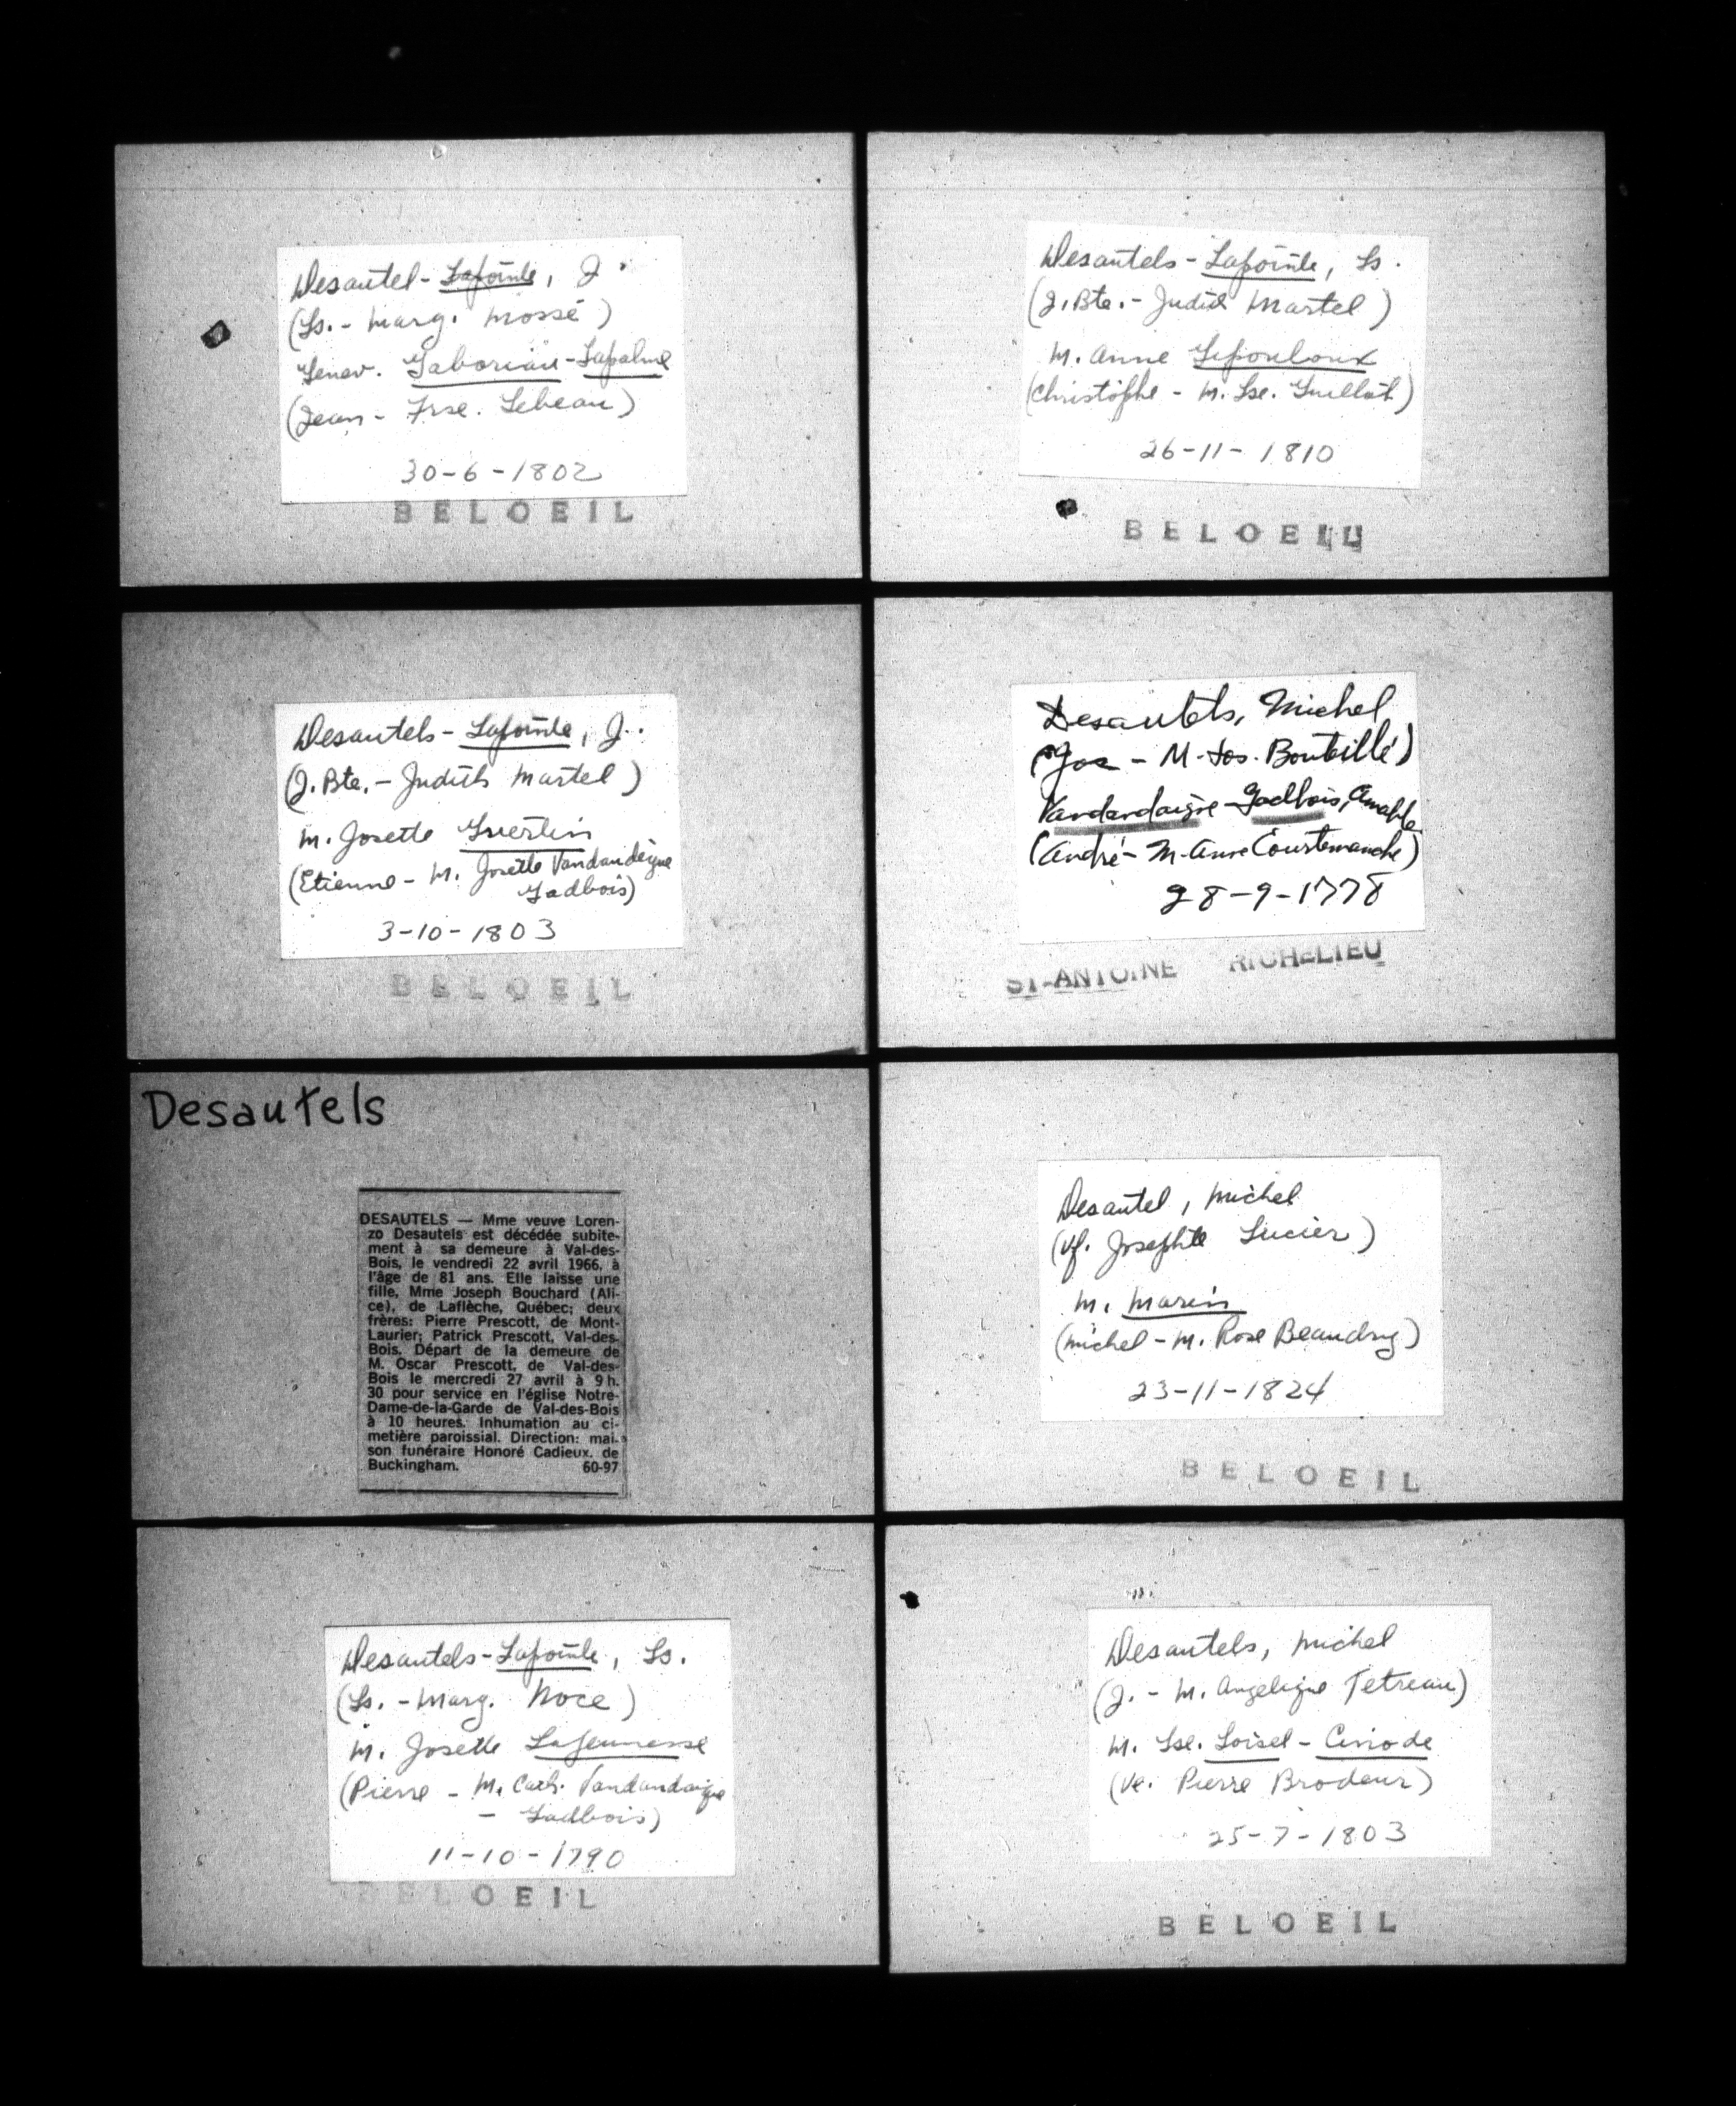 Desautel-Lapointe, J.
(Ls. - Marg. Mossé)
Genev. Gaboriau-Lapalme
(Jean - Frse. Lebeau)
30-6-1802
BELOEIL
Desautels-Lapointe, Ls.
(J. Bte. - Judith Martel)
M. Anne Lepouloux
(Christophe - M. Lse. Guillot)
26-11-1810
BELOEIL
Desautels-Lapointe, J.
(J. Bte. - Judith Martel)
M. Josette Guertin
(Etienne - M. Josette Vandandeigue
Gadbois)
3-10-1803
BELOEIL
Desautels, Michel
(Jos - M. Jos. Bouteillé)
Vandandaigue-Gadbois, Amable
(André - M-Anne Courtemanche)
28-9-1778
ST-ANTOINE RICHELIEU
Desautels
DESAUTELS — Mme veuve Loren-
zo Desautels est décédée subite-
ment à sa demeure à Val-des-
Bois, le vendredi 22 avril 1966, à
l'âge de 81 ans. Elle laisse une
fille, Mme Joseph Bouchard (Ali-
ce), de Laflèche, Québec; deux
frères: Pierre Prescott, de Mont-
Laurier; Patrick Prescott, Val-des-
Bois. Départ de la demeure de
M. Oscar Prescott, de Val-des-
Bois le mercredi 27 avril à 9 h.
30 pour service en l'église Notre-
Dame-de-la-Garde de Val-des-Bois
à 10 heures. Inhumation au ci-
metière paroissial. Direction: mai-
son funéraire Honoré Cadieux, de
Buckingham. 60-97
Desautel, Michel
(Vf. Josephte Lucier)
M. Marin
(Michel - M. Rose Beaudry)
23-11-1824
BELOEIL
Desautels-Lapointe, Ls.
(Ls. - Marg. Noce)
M. Josette Lajeunesse
(Pierre - M. Cath. Vandandaigue
- Gadbois)
11-10-1790
BELOEIL
Desautels, Michel
(J. - M. Angelique Tetreau)
M. Lse. Loisel - Ciriode
(Ve. Pierre Brodeur)
25-7-1803
BELOEIL